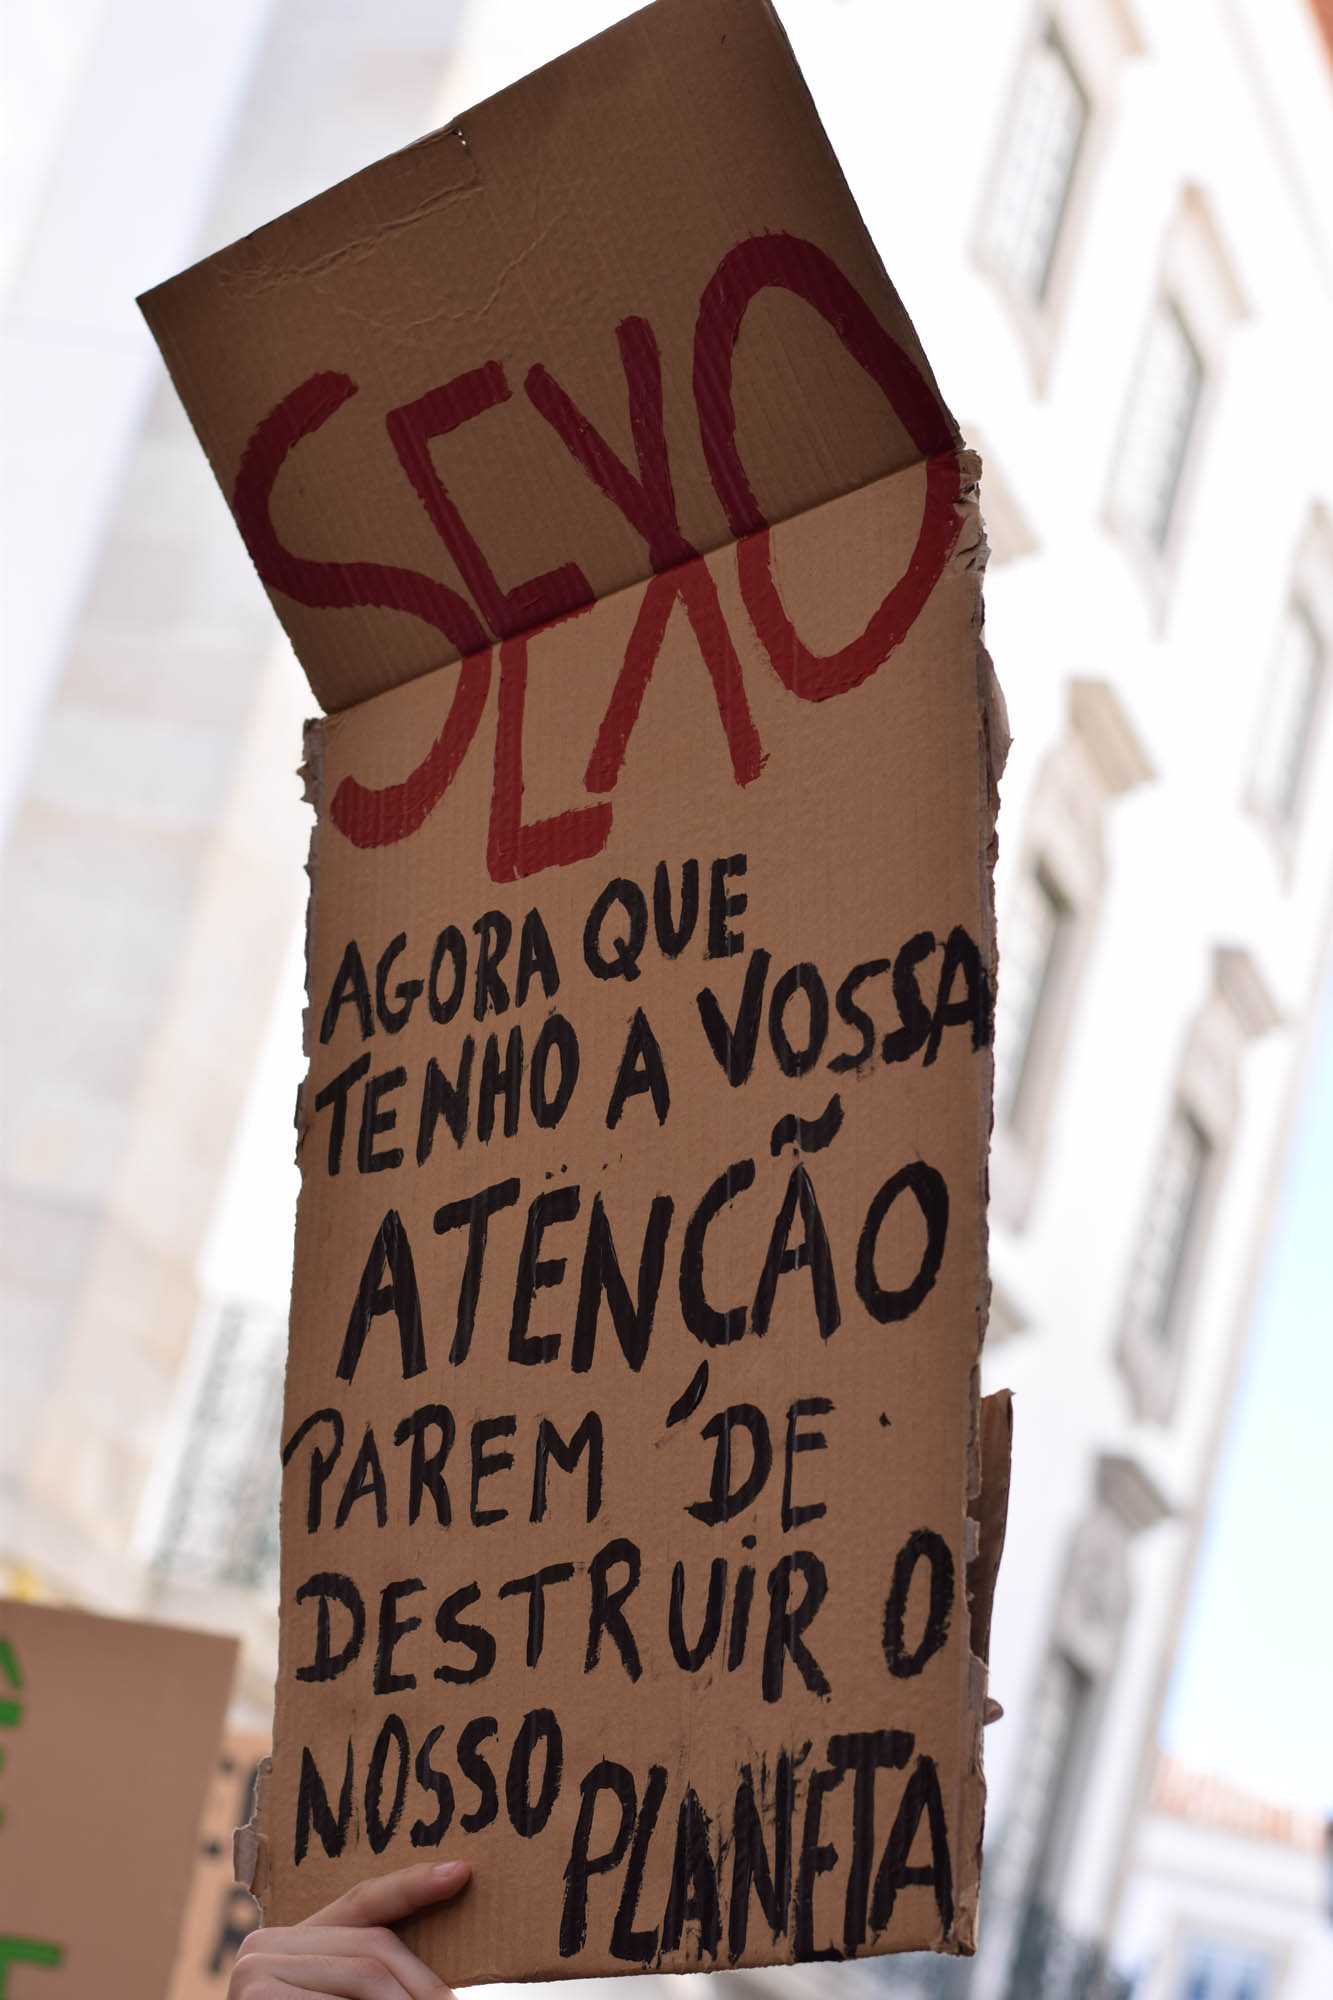 SEXO
AGORA QUE
TENHO A VOSSA
ATENÇÃO
PAREM DE
DESTRUiR O
NOSSO PLANETA